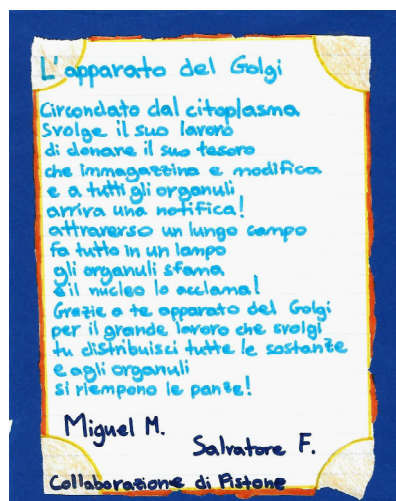 L'apparato del Golgi
Circondato dal citoplasma
Svolge il suo lavoro
di donare il suo tesoro
che immagazzina e modifica
e a tutti gli organuli
arriva una notifica!
attraverso un lungo campo
fa tutto in un lampo
gli organuli sfama
e il nucleo lo acclama!
Grazie a te apparato del Golgi
per il grande lavoro che svolgi
tu distribuisci tutte le sostanze
e agli organuli
si riempono le panze!
Miguel M.
Salvatore F.
Collaborazione di Pistone